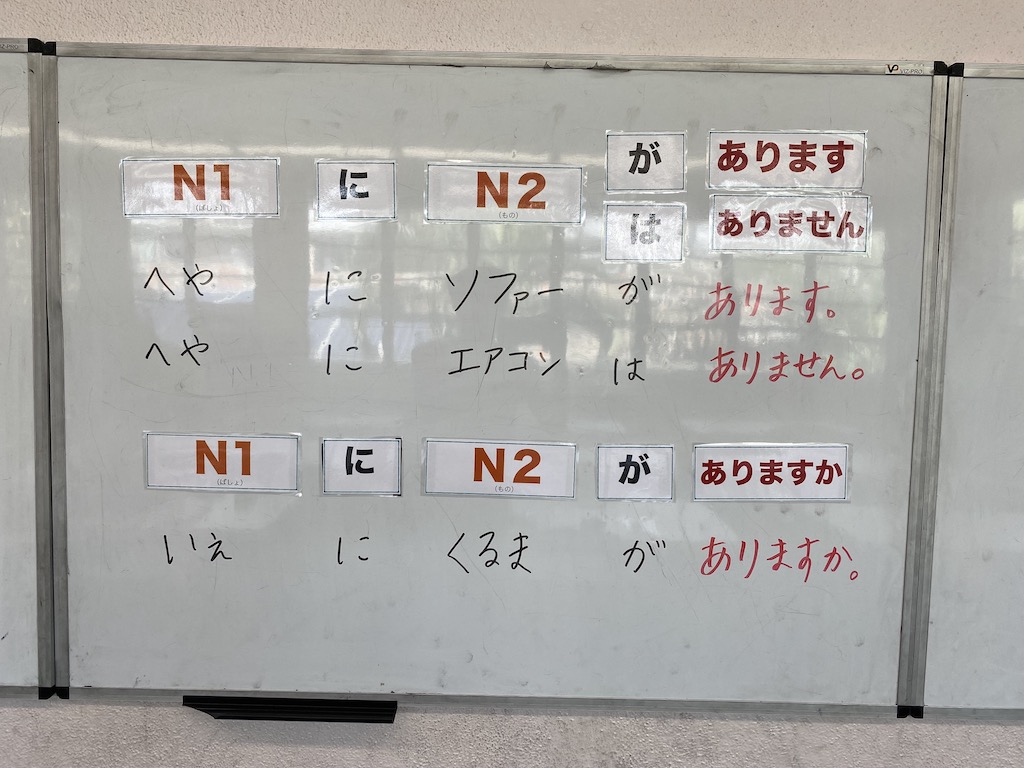 VIZ-PRO
N1 に N2 が あります
(ばしょ) (もの) は ありません
へや に ソファー が あります。
へや に エアコン は ありません。
N1 に N2 が ありますか
(ばしょ) (もの)
いえ に くるま が ありますか。